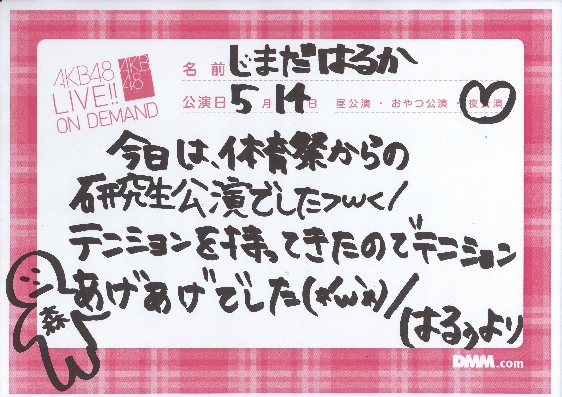 AKB48
LIVE!!
ON DEMAND
AKB
48
名前 しまだはるか
公演日 5月14日 昼公演・おやつ公演・夜公演
今日は、体育祭からの
研究生公演でした>w</
テニションを持ってきたのでテニション
あげあげでした(*'w'*)/
はるぅより
森
DMM.com